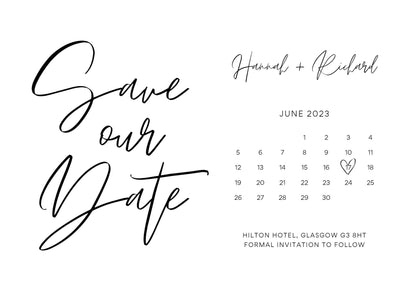 Save
our
Date
Hannah + Richard
JUNE 2023
1 2 3 4
5 6 7 8 9 10 11
12 13 14 15 16 17 18
19 20 21 22 23 24 25
26 27 28 29 30
HILTON HOTEL, GLASGOW G3 8HT
FORMAL INVITATION TO FOLLOW